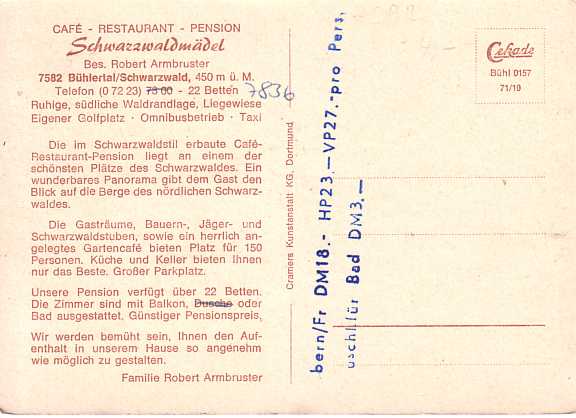 CAFÉ - RESTAURANT - PENSION
Schwarzwaldmädel
Bes. Robert Armbruster
7582 Bühlertal/Schwarzwald, 450 m ü. M.
Telefon (0 72 23) 73 00 - 22 Betten 7836
Ruhige, südliche Waldrandlage, Liegewiese
Eigener Golfplatz · Omnibusbetrieb · Taxi
Die im Schwarzwaldstil erbaute Café-
Restaurant-Pension liegt an einem der
schönsten Plätze des Schwarzwaldes. Ein
wunderbares Panorama gibt dem Gast den
Blick auf die Berge des nördlichen Schwarz-
waldes.
Die Gasträume, Bauern-, Jäger- und
Schwarzwaldstuben, sowie ein herrlich an-
gelegtes Gartencafé bieten Platz für 150
Personen. Küche und Keller bieten Ihnen
nur das Beste. Großer Parkplatz.
Unsere Pension verfügt über 22 Betten.
Die Zimmer sind mit Balkon, Dusche oder
Bad ausgestattet. Günstiger Pensionspreis,
Wir werden bemüht sein, Ihnen den Auf-
enthalt in unserem Hause so angenehm
wie möglich zu gestalten.
Familie Robert Armbruster
Cramers Kunstanstalt KG, Dortmund
bern/Fr DM18.- HP23.-VP27.-pro Pers,
uschl.für Bad DM3.-
Cekade
Bühl 0157
71/10